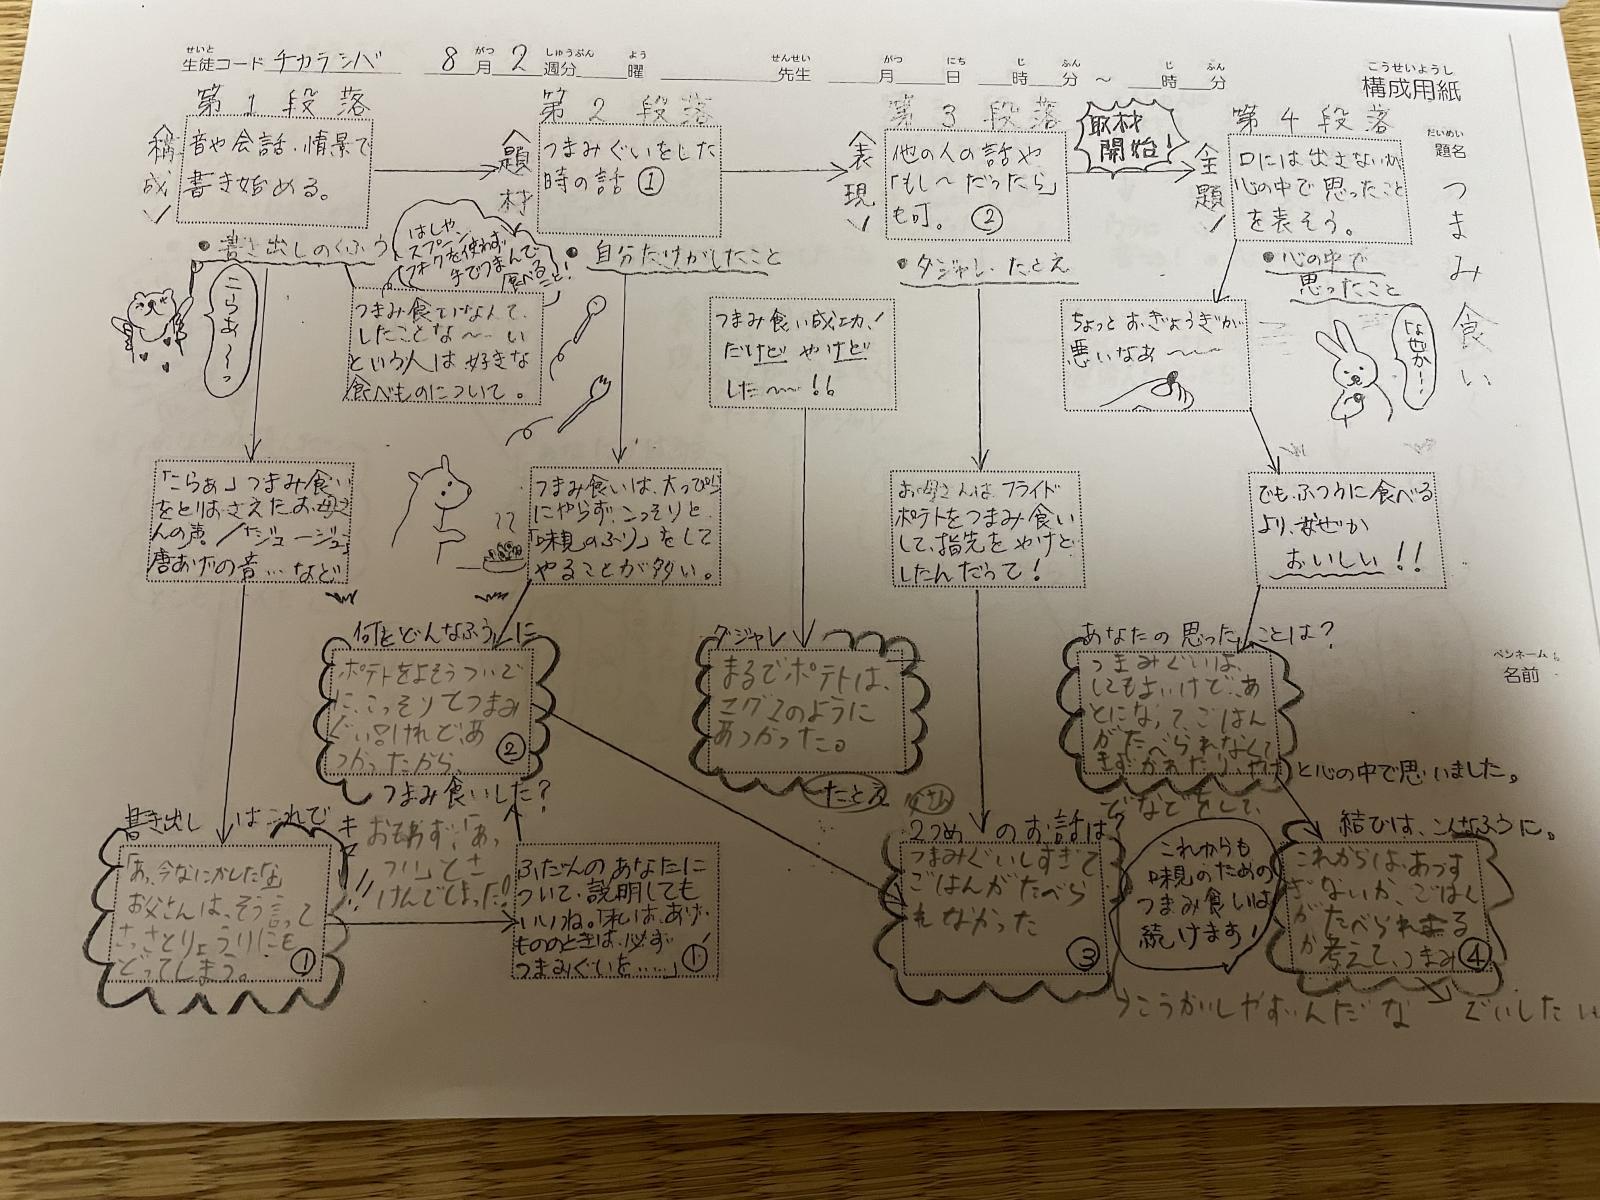 生徒コード チカラシバ 8月2週分 曜 先生 月 日 時 分 ～ 時 分
せいと がつ しゅうぶん よう せんせい がつ にち じ ふん じ ふん
こうせいようし
構成用紙
だいめい
題名
つまみ食い
ペンネーム
名前
第1段落
構成
音や会話、情景で
書き始める。
第2段落
題材
つまみぐいをした
時の話 ①
第3段落
表現
他の人の話や
「もし～だったら」
も可。 ②
取材
開始!
第4段落
主題
口には出さないが
心の中で思ったこと
を表そう。
●書き出しのくふう
こらあ～っ
はしや
スプーン、
フォクを使わず
手でつまんで
食べること!
●自分だけがしたこと
●ダジャレ、たとえ
●心の中で
思ったこと
なぜか…
つまみ食いなんて、
したことな～～い
という人は好きな
食べものについて。
つまみ食い成功!
だけど やけど
した～～!!
ちょっとおぎょうぎが
悪いなあ～～
「こらぁ」つまみ食い
をとりおさえたお母さ
んの声。/「ジュージュー」
唐あげの音…など
つまみ食いは、大っぴら
にやらず、こっそりと、
「味見のふり」をして
やることが多い。
お母さんは、フライド
ポテトをつまみ食い
して、指先をやけど
したんだって!
でも、ふつうに食べる
より、なぜか
おいしい!!
何をどんなふうに
ポテトをよそうついで
に、こっそりてつまみ
ぐい。けれど、あ
つかったから、
②
つまみ食いした?
ダジャレ
まるでポテトは、
マグマのように
あつかった。
たとえ
あなたの思ったことは?
つまみぐいは、
してもよいけど、あ
とになって、ごはん
がたべられなくて
と心の中で思いました。
書き出し はこれで
「あ、今なにかしたな」
お父さんは、そう言って
さっさとりょうりにも
どってしまう。
①
おもわず、「あっ
つい」とさ
けんでしまった!
ふだんのあなたに
ついて、説明しても
いいね。「私は、あげ
もののときは、必ず
つまみぐいを……」
①
2つめ のお話は?
つまみぐいしすぎて
ごはんがたべら
れなかった
③
でなどをして、
これからも
味見のための
つまみ食いは
続けます!
結びは、こんなふうに。
これからは、あつす
ぎないか、ごはん
がたべられまるる
か考えて、つまみ
④
ぐいしたい
こうかいしやすいんだな